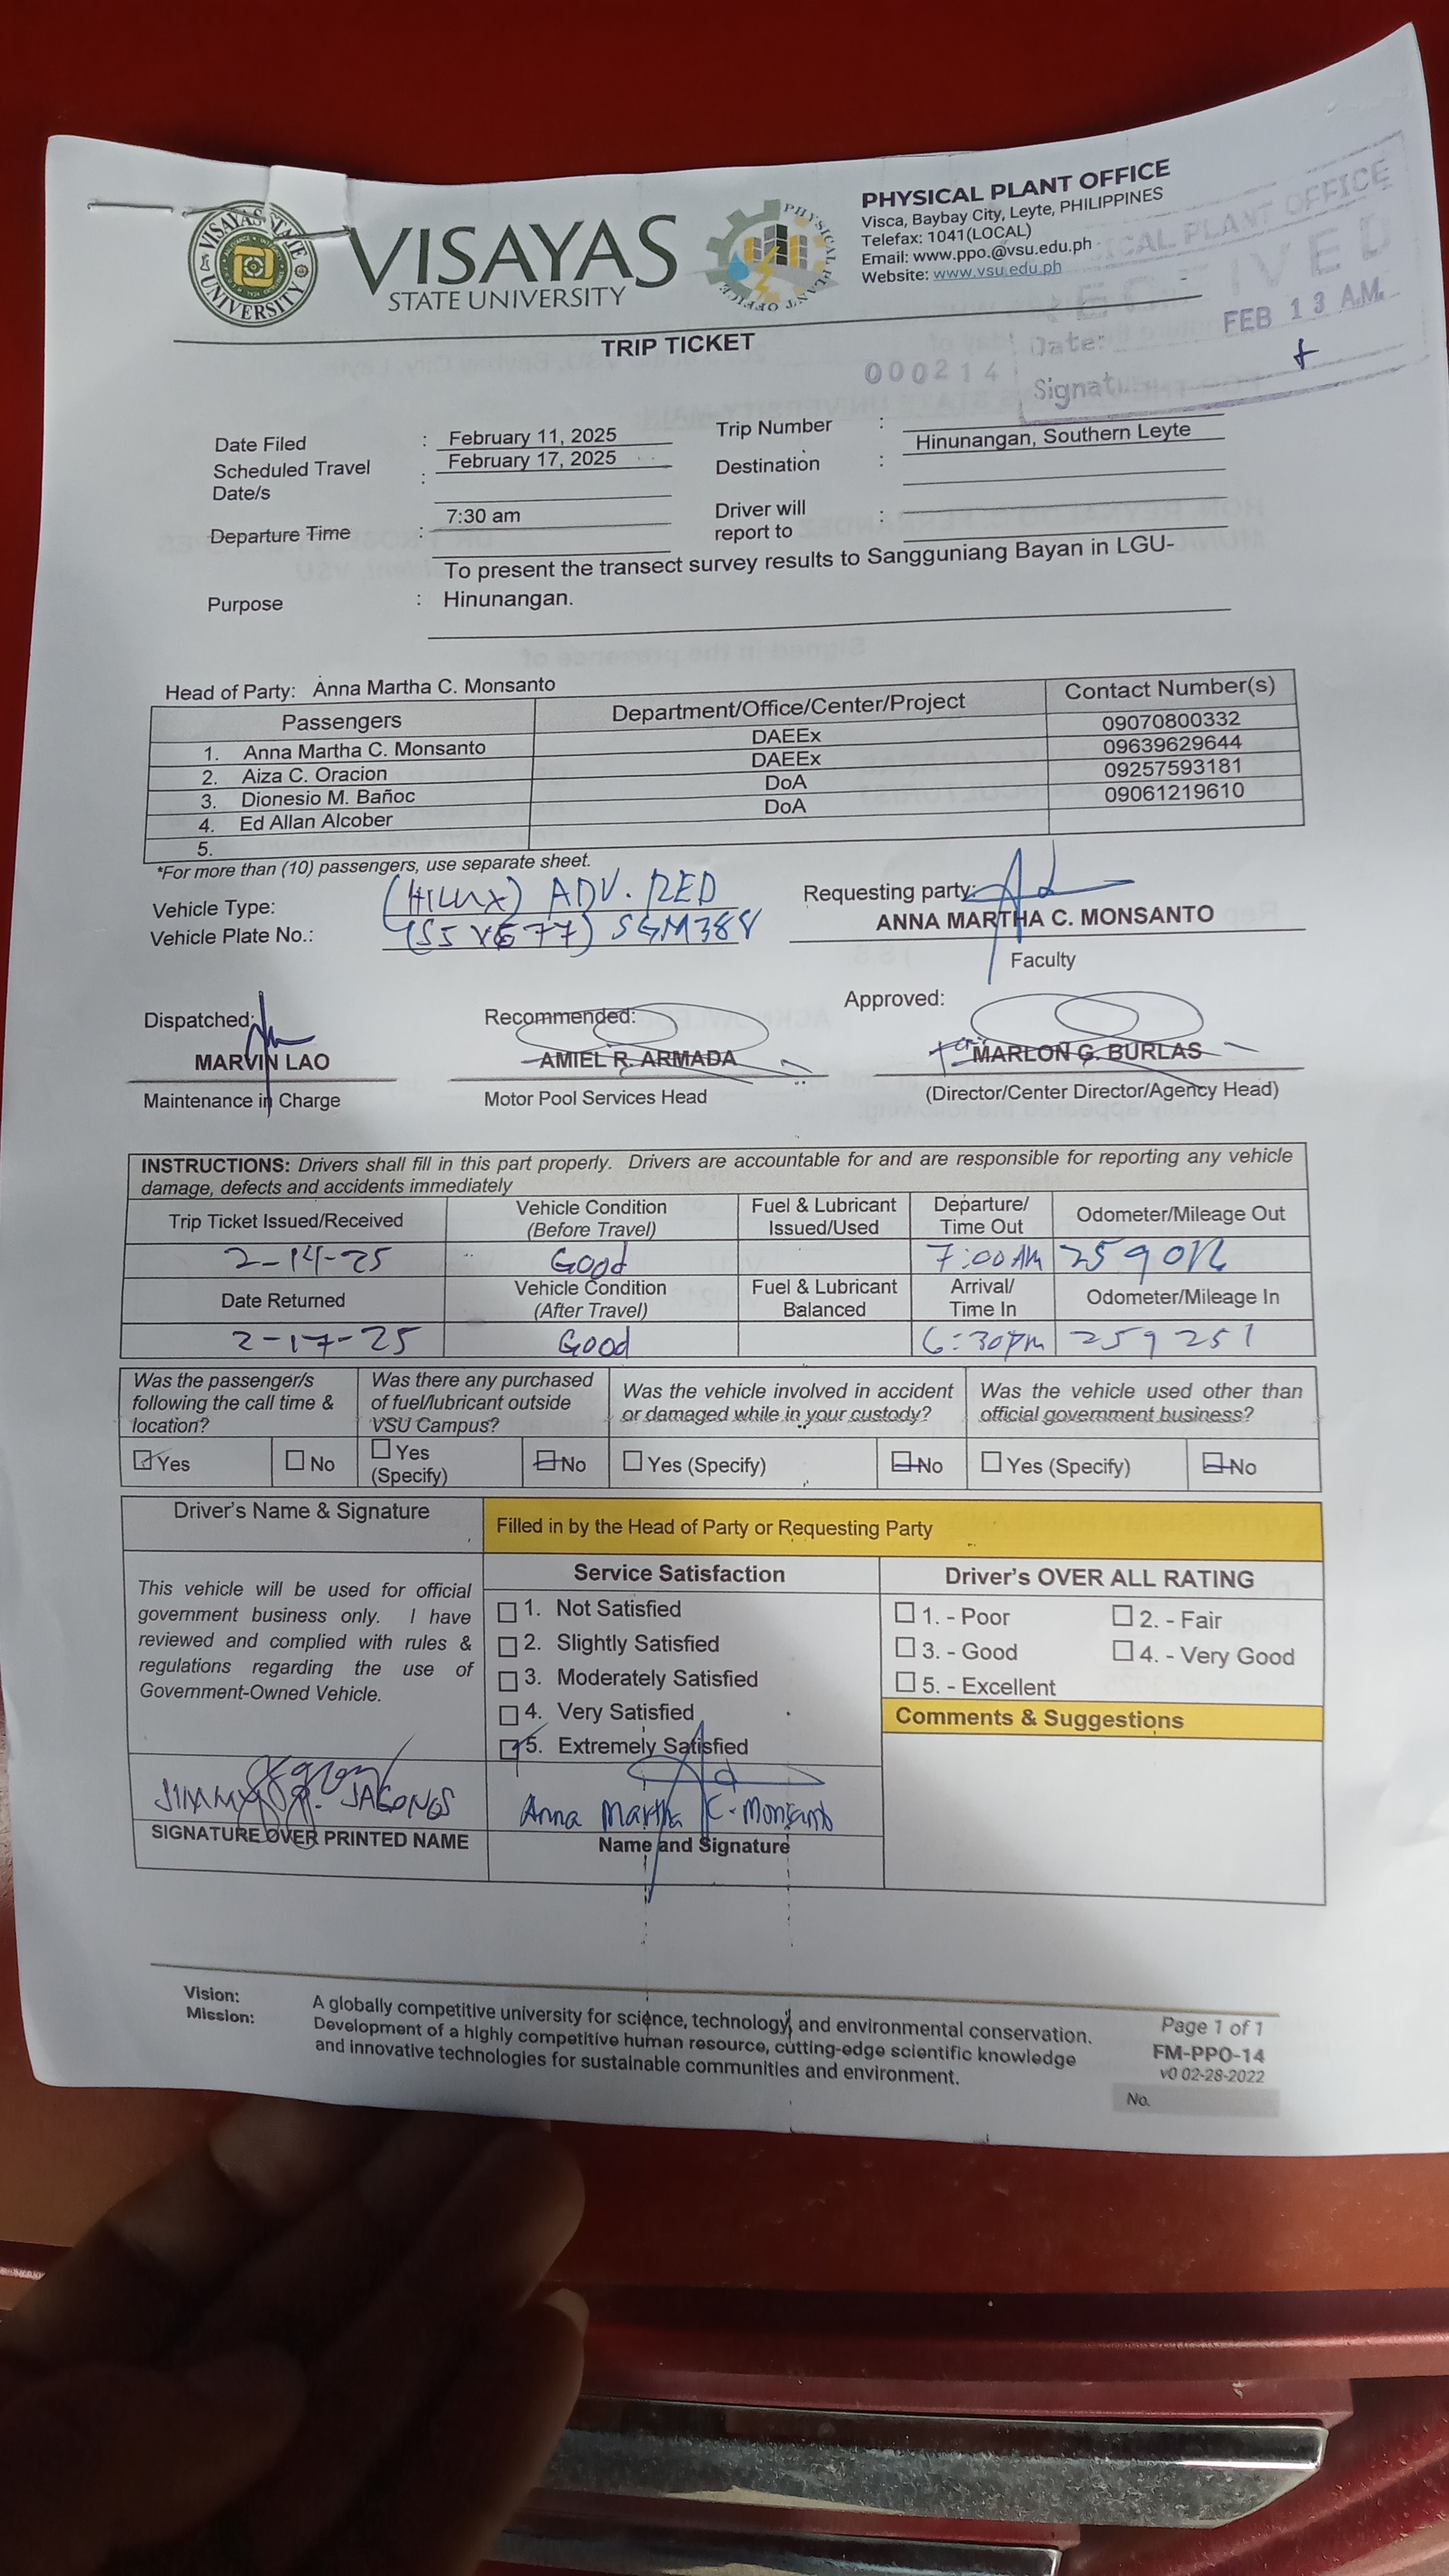 VISAYAS STATE UNIVERSITY
VISAYAS
STATE UNIVERSITY
PHYSICAL PLANT OFFICE
PHYSICAL PLANT OFFICE
Visca, Baybay City, Leyte, PHILIPPINES
Telefax: 1041(LOCAL)
Email: www.ppo.@vsu.edu.ph
Website: www.vsu.edu.ph
ICAL PLANT OFFICE
FEB 13 A.M.
Date:
TRIP TICKET
000214
Date Filed : February 11, 2025 Trip Number :
Scheduled Travel Date/s : February 17, 2025 Destination : Hinunangan, Southern Leyte
Departure Time : 7:30 am Driver will report to :
Purpose : To present the transect survey results to Sangguniang Bayan in LGU-
Hinunangan.
Head of Party: Anna Martha C. Monsanto
Passengers Department/Office/Center/Project Contact Number(s)
1. Anna Martha C. Monsanto DAEEx 09070800332
2. Aiza C. Oracion DAEEx 09639629644
3. Dionesio M. Bañoc DoA 09257593181
4. Ed Allan Alcober DoA 09061219610
5.
*For more than (10) passengers, use separate sheet.
Vehicle Type: (HILUX) ADV. RED
Vehicle Plate No.:
Requesting party:
ANNA MARTHA C. MONSANTO
Faculty
Dispatched: Recommended: Approved:
MARVIN LAO AMIEL R. ARMADA MARLON G. BURLAS
Maintenance in Charge Motor Pool Services Head (Director/Center Director/Agency Head)
INSTRUCTIONS: Drivers shall fill in this part properly. Drivers are accountable for and are responsible for reporting any vehicle
damage, defects and accidents immediately
Trip Ticket Issued/Received Vehicle Condition (Before Travel) Fuel & Lubricant Issued/Used Departure/ Time Out Odometer/Mileage Out
2-14-25 Good 7:00 AM
Date Returned Vehicle Condition (After Travel) Fuel & Lubricant Balanced Arrival/ Time In Odometer/Mileage In
2-17-25 Good 6:30pm 259251
Was the passenger/s following the call time & location?
Was there any purchased of fuel/lubricant outside VSU Campus?
Was the vehicle involved in accident or damaged while in your custody?
Was the vehicle used other than official government business?
Yes No Yes (Specify) No Yes (Specify) No Yes (Specify) No
Driver's Name & Signature
Filled in by the Head of Party or Requesting Party
This vehicle will be used for official
government business only. I have
reviewed and complied with rules &
regulations regarding the use of
Government-Owned Vehicle.
Service Satisfaction
1. Not Satisfied
2. Slightly Satisfied
3. Moderately Satisfied
4. Very Satisfied
5. Extremely Satisfied
Driver's OVER ALL RATING
1. - Poor 2. - Fair
3. - Good 4. - Very Good
5. - Excellent
Comments & Suggestions
Anna Martha C. Monsanto
SIGNATURE OVER PRINTED NAME
Name and Signature
Vision: A globally competitive university for science, technology, and environmental conservation.
Mission: Development of a highly competitive human resource, cutting-edge scientific knowledge
and innovative technologies for sustainable communities and environment.
Page 1 of 1
FM-PPO-14
v0 02-28-2022
No.